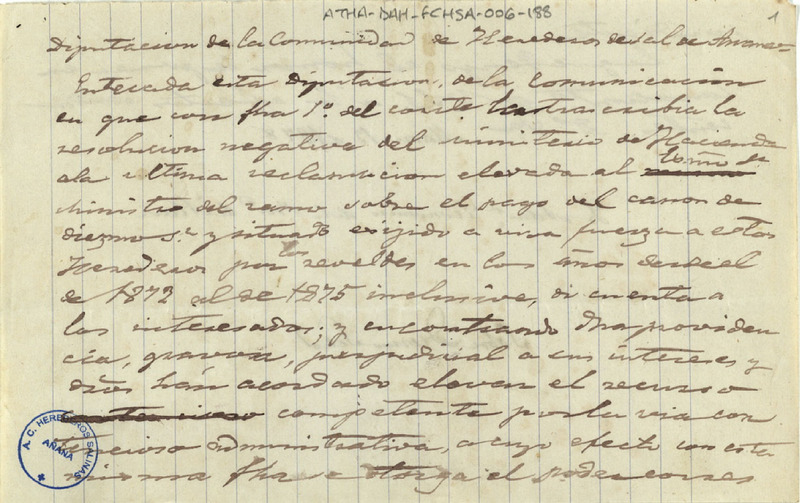 ATHA-DAH-FCHSA-006-188
1
Diputacion de la Comunidad de Herederos de sal de Anana
Enterada esta Diputacion, de la Comunicación
en que con fha 1º. del corrte. trascribia la
resolucion negativa del ministerio de Hacienda
ala ultima reclamacion elevada al Exmo Sr
Ministro del ramo sobre el pago del canon de
diezmo sl. y situado exijido a viva fuerza a estos
Herederos por los reveldes en los años desde el
de 1872 al de 1875 inclusive, di cuenta a
los interesados; y encontrando dha providen
cia, gravosa, perjudicial a sus intereses y
dros han acordado elevar el recurso
competente por la via con
tencioso administrativa, a cuyo efecto con esta
misma fha se otorga el poder corres
A. C. HEREDEROS SALINAS
AÑANA